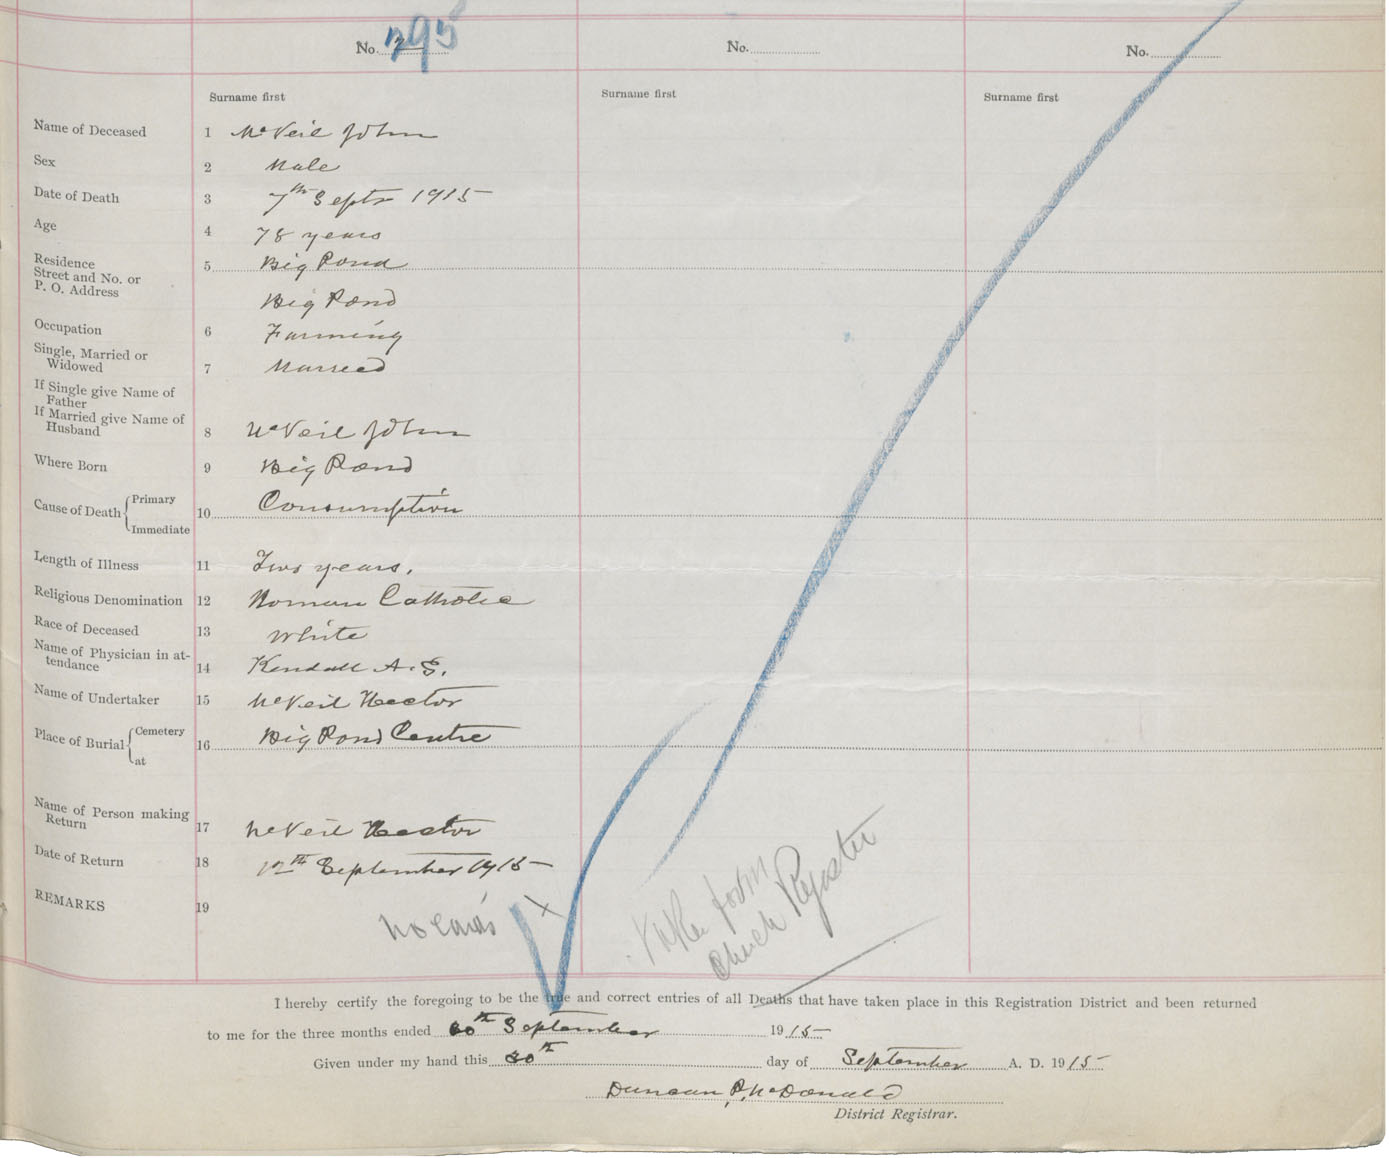 No. 295
No.
No.
Surname first
Surname first
Surname first
Name of Deceased 1 McNeil John
Sex 2 Male
Date of Death 3 7th Septr 1915
Age 4 78 years
Residence 5 Big Pond
Street and No. or
P. O. Address
Big Pond
Occupation 6 Farming
Single, Married or
Widowed 7 Married
If Single give Name of
Father
If Married give Name of
Husband 8 McNeil John
Where Born 9 Big Pond
Cause of Death Primary
Immediate 10 Consumption
Length of Illness 11 Two years.
Religious Denomination 12 Roman Catholic
Race of Deceased 13 White
Name of Physician in at-
tendance 14 Kendall A. S.
Name of Undertaker 15 McNeil Hector
Place of Burial Cemetery
at 16 Big Pond Centre
Name of Person making
Return 17 McNeil Hector
Date of Return 18 12th September 1915
REMARKS 19
No cards X
Taken from
Church Register
I hereby certify the foregoing to be the true and correct entries of all Deaths that have taken place in this Registration District and been returned
to me for the three months ended 30th September 1915
Given under my hand this 30th day of September A. D. 1915
Duncan P. McDonald
District Registrar.